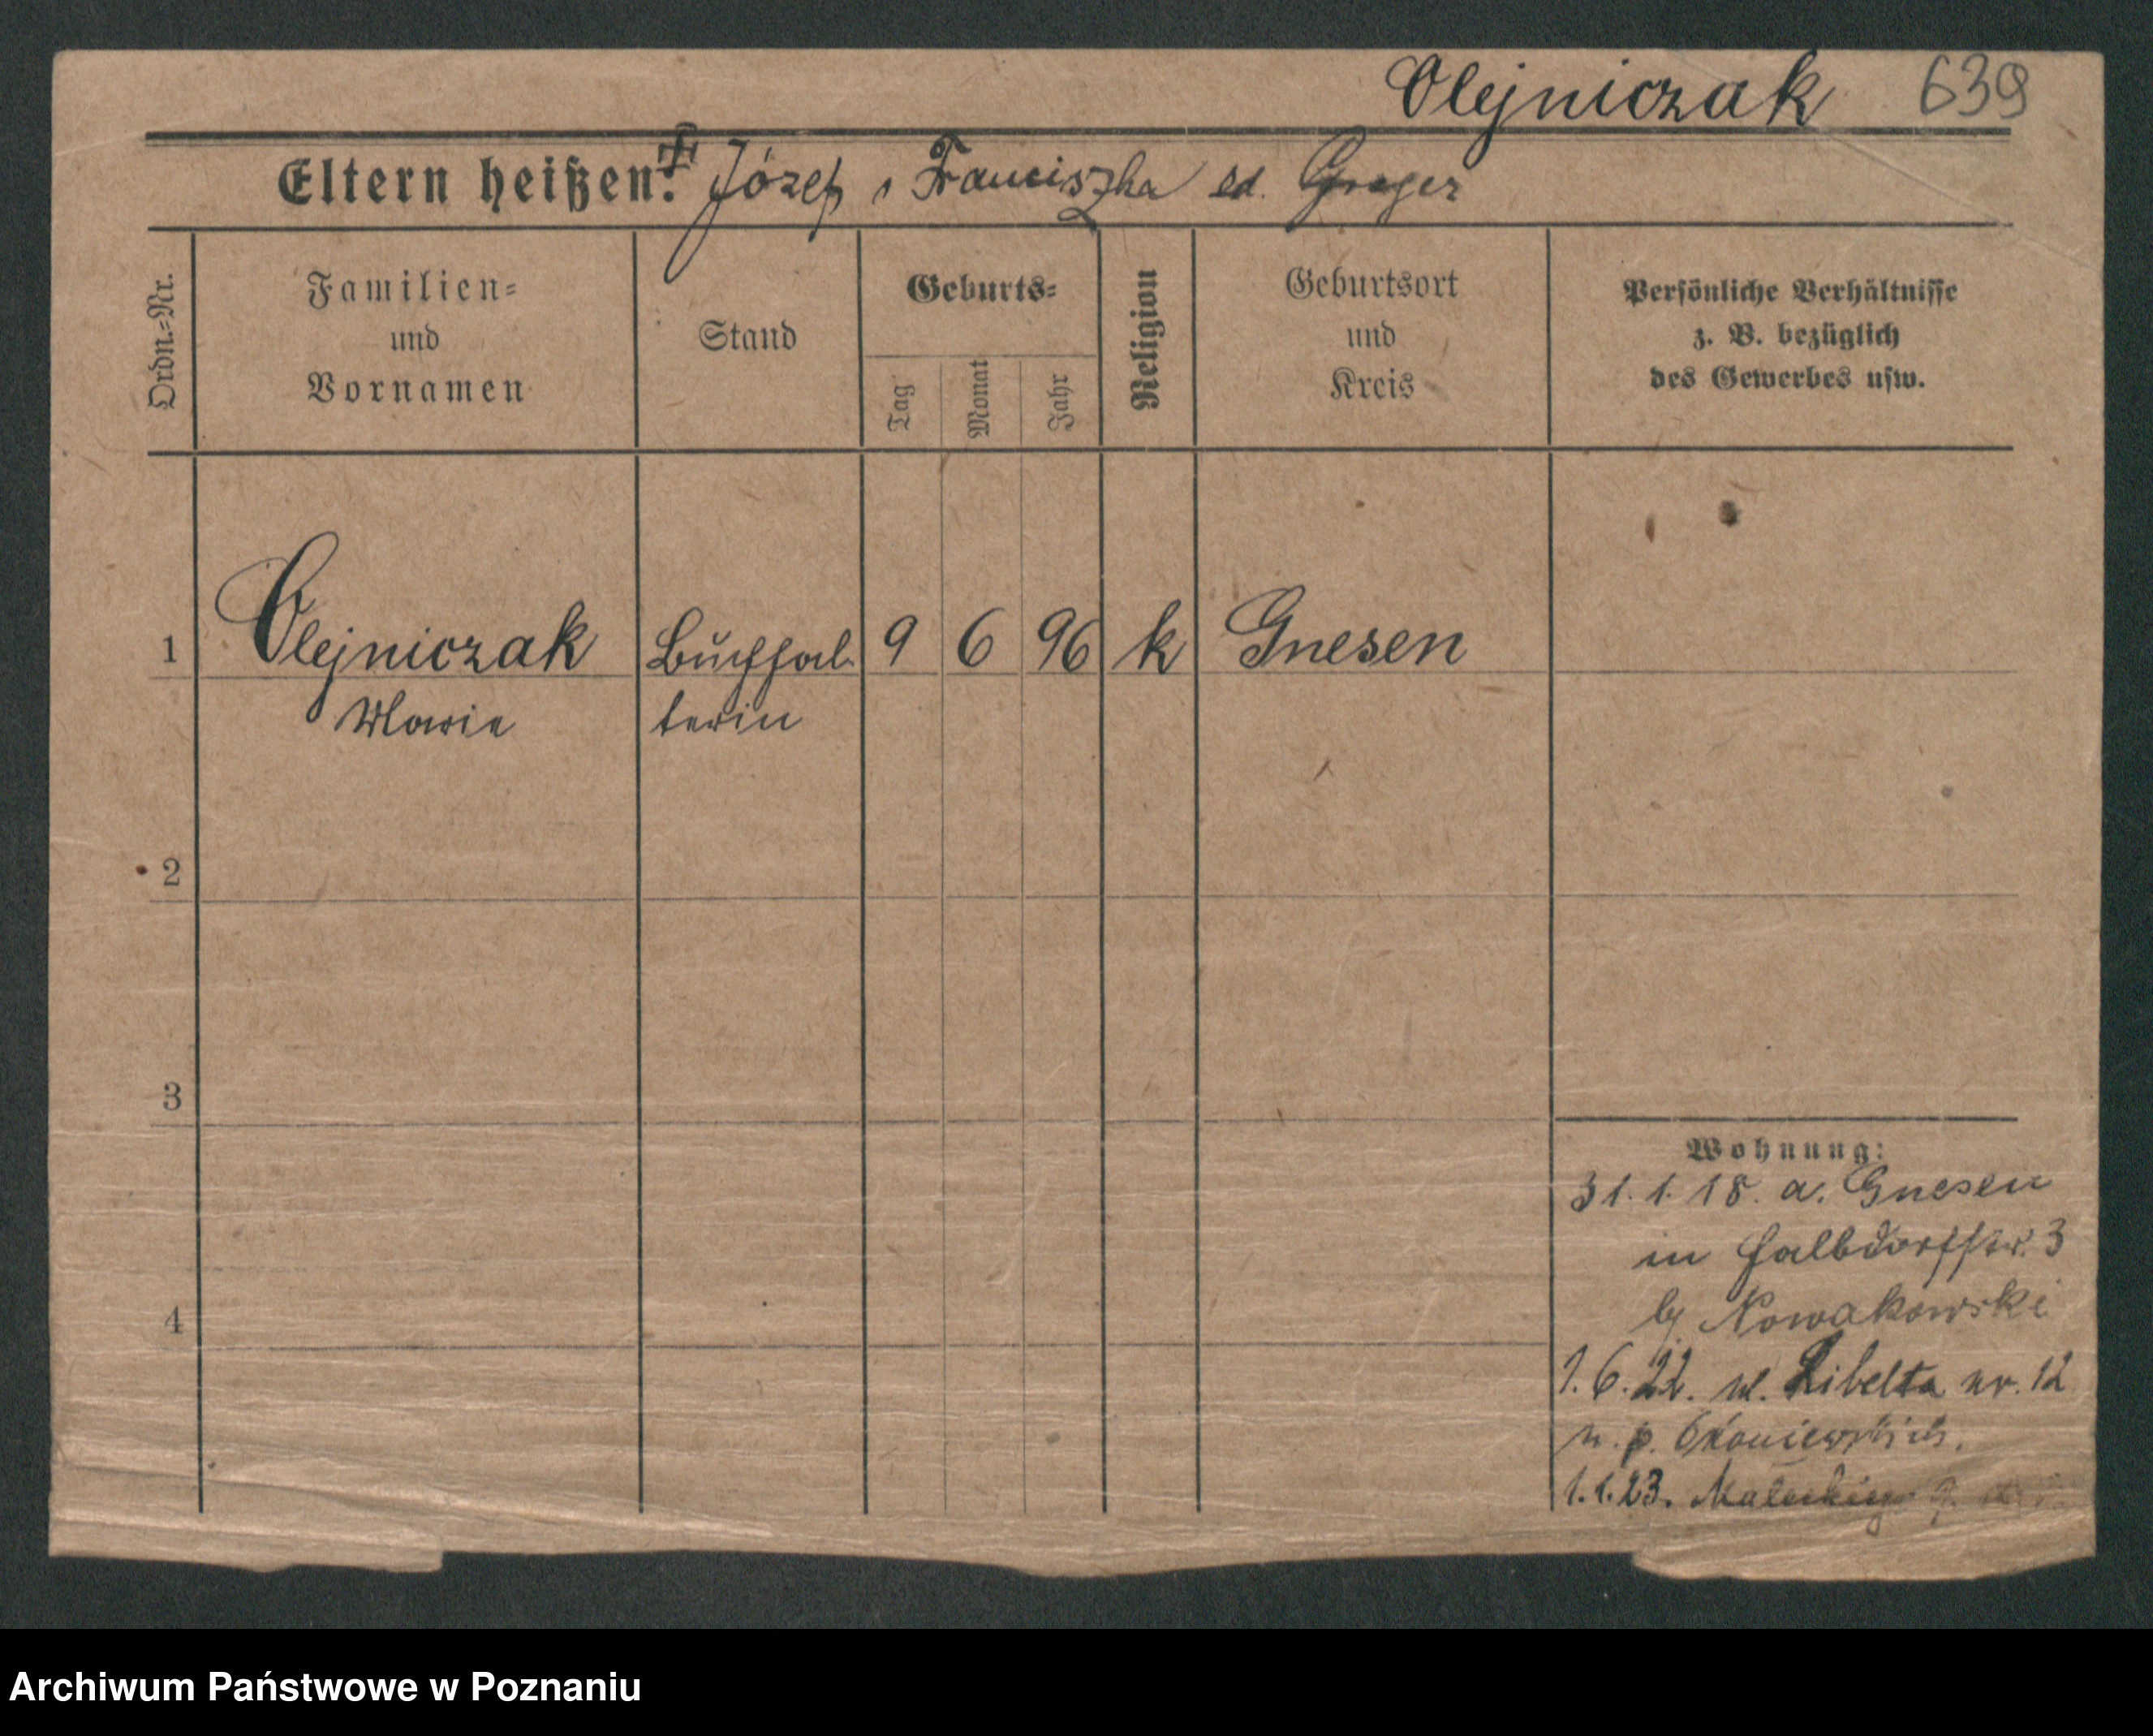 Olejniczak 639
Eltern heißen: Józef i Franciszka zd. Greger
Ordn.=Nr.
Familien=
und
Vornamen
Stand
Geburts=
Tag
Monat
Jahr
Religion
Geburtsort
und
Kreis
Persönliche Verhältnisse
z. B. bezüglich
des Gewerbes usw.
1 Olejniczak Buchhal- 9 6 96 k Gnesen
Marie terin
2
3
4
Wohnung:
31. 1. 18. a. Gnesen
in Halbdorfstr. 3
b/ Nowakowski
1. 6. 22. ul. Libelta nr. 12
u. p.
1. 1. 23. Małeckiego
Archiwum Państwowe w Poznaniu